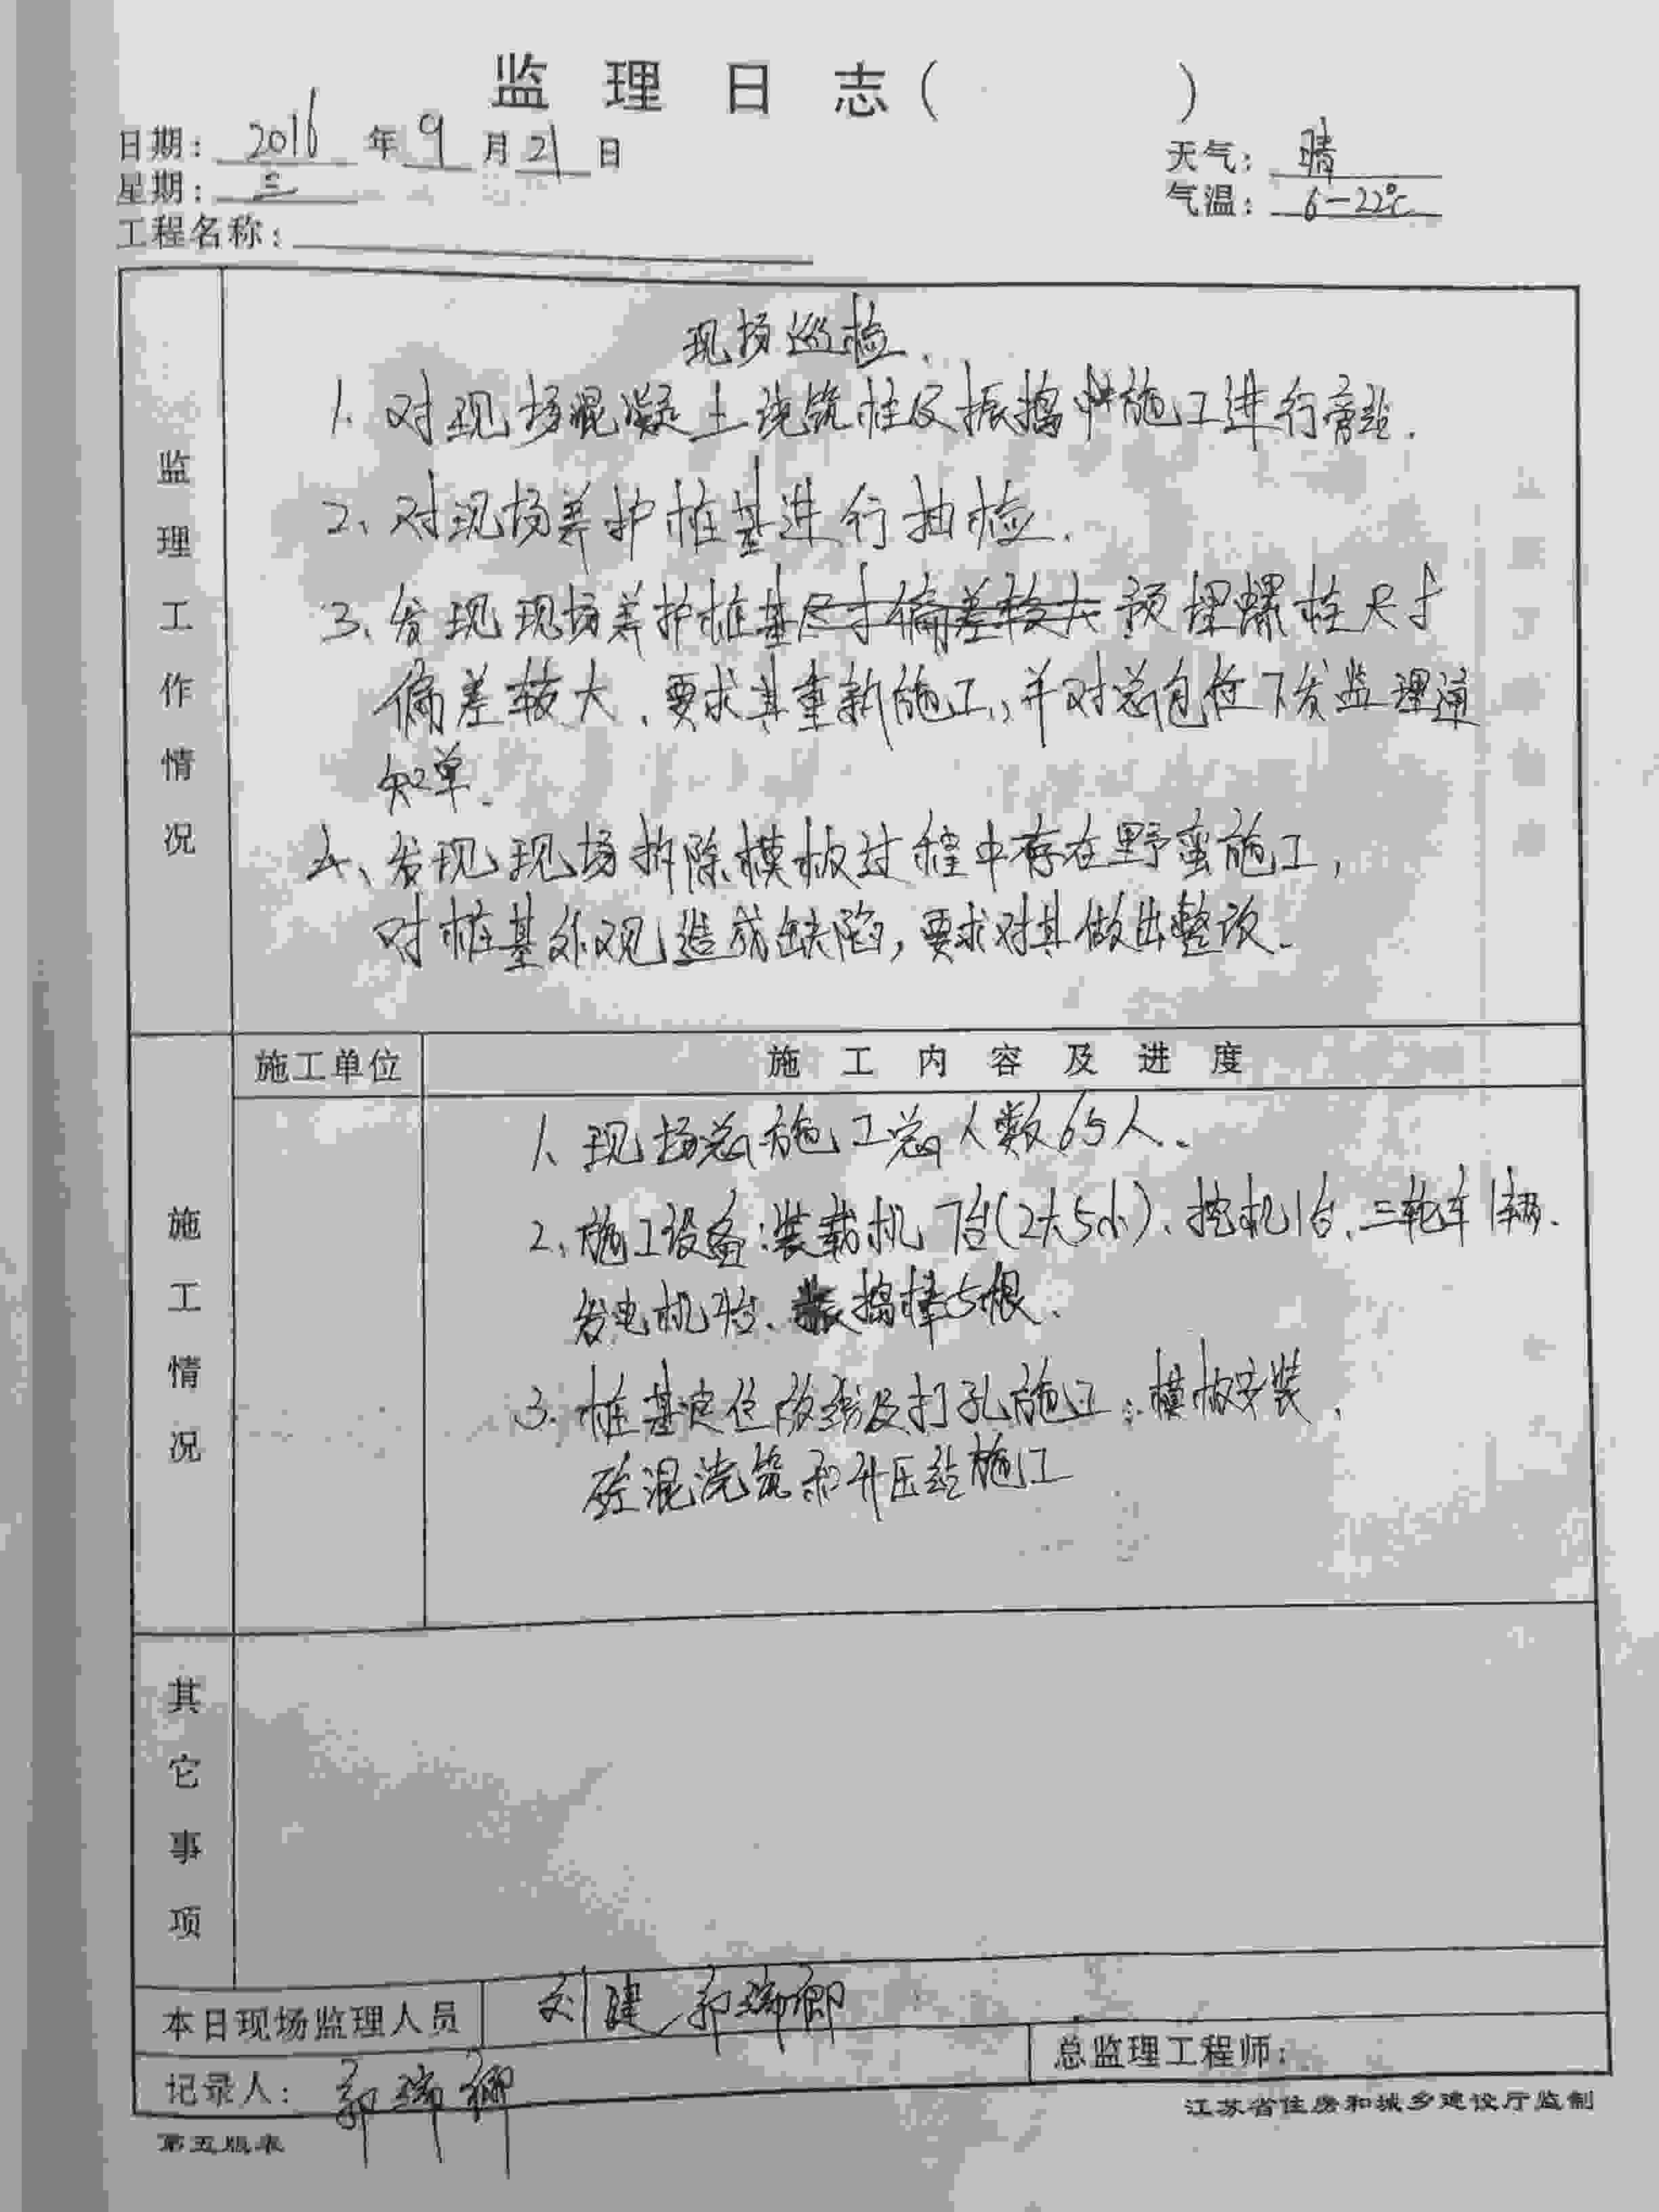 监理日志( )
日期：2016年9月21日
天气：晴
星期：三
气温：6-22℃
工程名称：
监理工作情况
现场巡检.
1. 对现场混凝土浇筑桩及振捣施工进行旁站.
2、对现场养护桩基进行抽检.
3、发现现场养护桩基尺寸偏差较大预埋螺栓尺寸
偏差较大、要求其重新施工,并对总包位下发监理通
知单.
4、发现现场拆除模板过程中存在野蛮施工,
对桩基外观造成缺陷,要求对其做出整改.
施工情况
施工单位
施工内容及进度
1、现场总施工总人数65人.
2、施工设备:装载机7台(2大5小)、挖机1台、三轮车1辆.
发电机7台、振捣棒5根.
3. 桩基定位放线及打孔施工;模板安装、
砼混浇筑和升压站施工
其它事项
本日现场监理人员 刘建 郭瑞卿
记录人：郭瑞卿
总监理工程师：
第五版表
江苏省住房和城乡建设厅监制